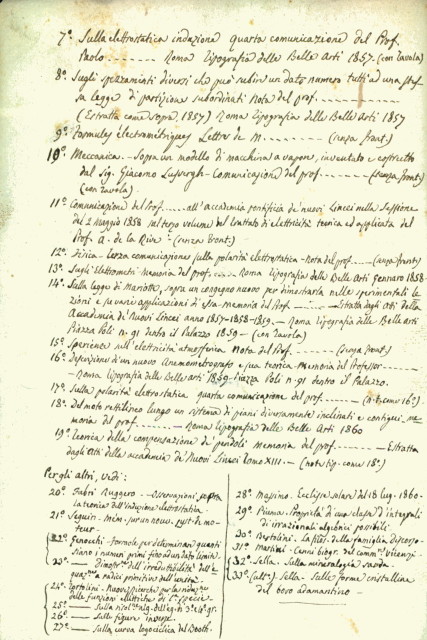 7º Sulla elettrostatica induzione quarta comunicazione del Prof.
Paolo - - - - - Roma tipografia delle Belle Arti 1857. (con tavola)
8º Sugli spezzamenti diversi che può subire un dato numero tutti ad una stes
sa legge di partizione subordinati Nota del prof. - - - - -
(Estratta come sopra, 1857) Roma tipografia delle Belle Arti 1857
9º Formules électrométriques Lettre de M. - - - - - (senza front.)
10º Meccanica. - Sopra un modello di macchina a vapore, inventato e costretto
dal Sig. Giacomo - Comunicazione del prof. - - - - (senza front.)
(con tavola)
11º Comunicazione del Prof. .... all'accademia pontificia de' nuovi Lincei nella Sessione
del 2 Maggio 1858 sul terzo volume del trattato di elettricità teorica ed applicata del
Prof. A. de la Rive - (senza front.)
12º Fisica - terza comunicazione sulla polarità elettrostatica - Nota del prof. - - (senza front.)
13º Sugli Elettrometri Memoria del prof. - - - Roma tipografia delle Belle Arti Gennaro 1858 -
14º Sulla legge di Mariotte, sopra un congegno nuovo per dimostrarla nelle sperimentali le
zioni e su varie applicazioni di essa - Memoria del Prof. - - - Estratta dagli Atti della
Accademia de' Nuovi Lincei anno 1857-1858-1859. - Roma tipografia delle Belle arti
Piazza Poli nº 91 dentro il Palazzo 1859 - (con tavola)
15º Sperienze sull'elettricità atmosferica Nota del Prof. - - - - (senza front.)
16º Descrizione di un nuovo Anemometrografo e sua teorica - Memoria del Professor - - -
- Roma tipografia delle Belle arti 1859 Piazza Poli nº 91 dentro il Palazzo.
17º Sulla polarità elettrostatica quarta comunicazione del prof. - - - -
18º Del moto rettilineo lungo un sistema di piani diversamente inclinati e contigui me
moria del prof. - - - - Roma tipografia delle Belle Arti 1860
19º Teorica della compensazione de' pendoli Memoria del prof. - - - - Estratta
dagli Atti della accademia de' Nuovi Lincei tomo XIII. -
Per gli altri, vedi:
20º Fabri Ruggero - Osservazioni sopra
la teorica dell'induzione elettrostatica
21º Seguin. - Mém. sur un nouv. syst. de mo
teur -
22º Genocchi - Formole per determinare quanti
siano i numeri primi fino ad un dato limite
23º - dimostr. dell'irreduttibilità dell'e
quaz. a radici primitive dell'unità
24º Tortolini -
delle funzioni ellittiche di 1ª specie
25º -
26º - Sulle figure inverse
27º - Sulla curva logociclica del Booth.
28º Massimo. Eclisse solare del 18 lug. 1860 -
29º Piuma. Proprietà di una classe d'integrali
di irrazionali algebrici possibili
30º Bertolini. La della famiglia
31º Martini. Cenni biogr. del comm.
32º Sella. Sulla mineralogia sarda
33º - Sella. - Sulle forme cristalline
del boro adamantino -